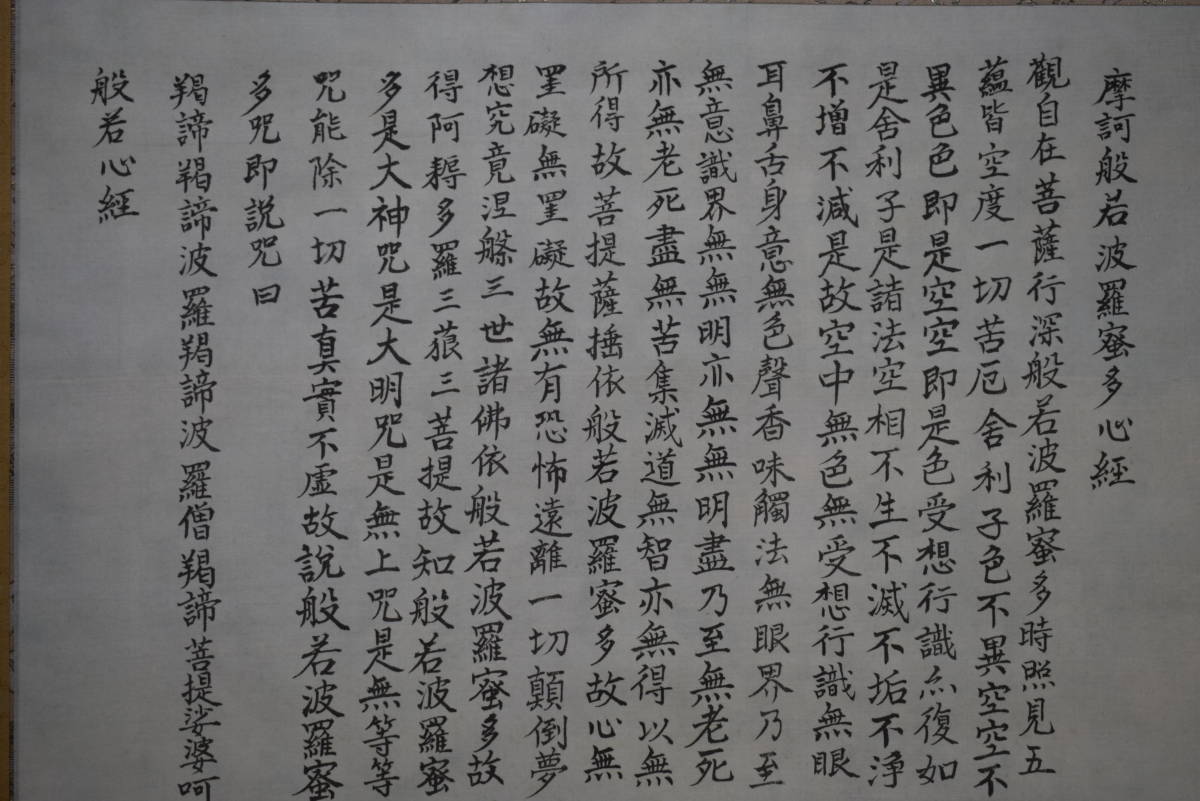 摩訶般若波羅蜜多心經
觀自在菩薩行深般若波羅蜜多時照見五
蘊皆空度一切苦厄舍利子色不異空空不
異色色即是空空即是色受想行識亦復如
是舍利子是諸法空相不生不滅不垢不淨
不增不減是故空中無色無受想行識無眼
耳鼻舌身意無色聲香味觸法無眼界乃至
無意識界無無明亦無無明盡乃至無老死
亦無老死盡無苦集滅道無智亦無得以無
所得故菩提薩埵依般若波羅蜜多故心無
罣礙無罣礙故無有恐怖遠離一切顛倒夢
想究竟涅槃三世諸佛依般若波羅蜜多故
得阿耨多羅三藐三菩提故知般若波羅蜜
多是大神咒是大明咒是無上咒是無等等
咒能除一切苦真實不虛故說般若波羅蜜
多咒即說咒曰
羯諦羯諦波羅羯諦波羅僧羯諦菩提娑婆呵
般若心經